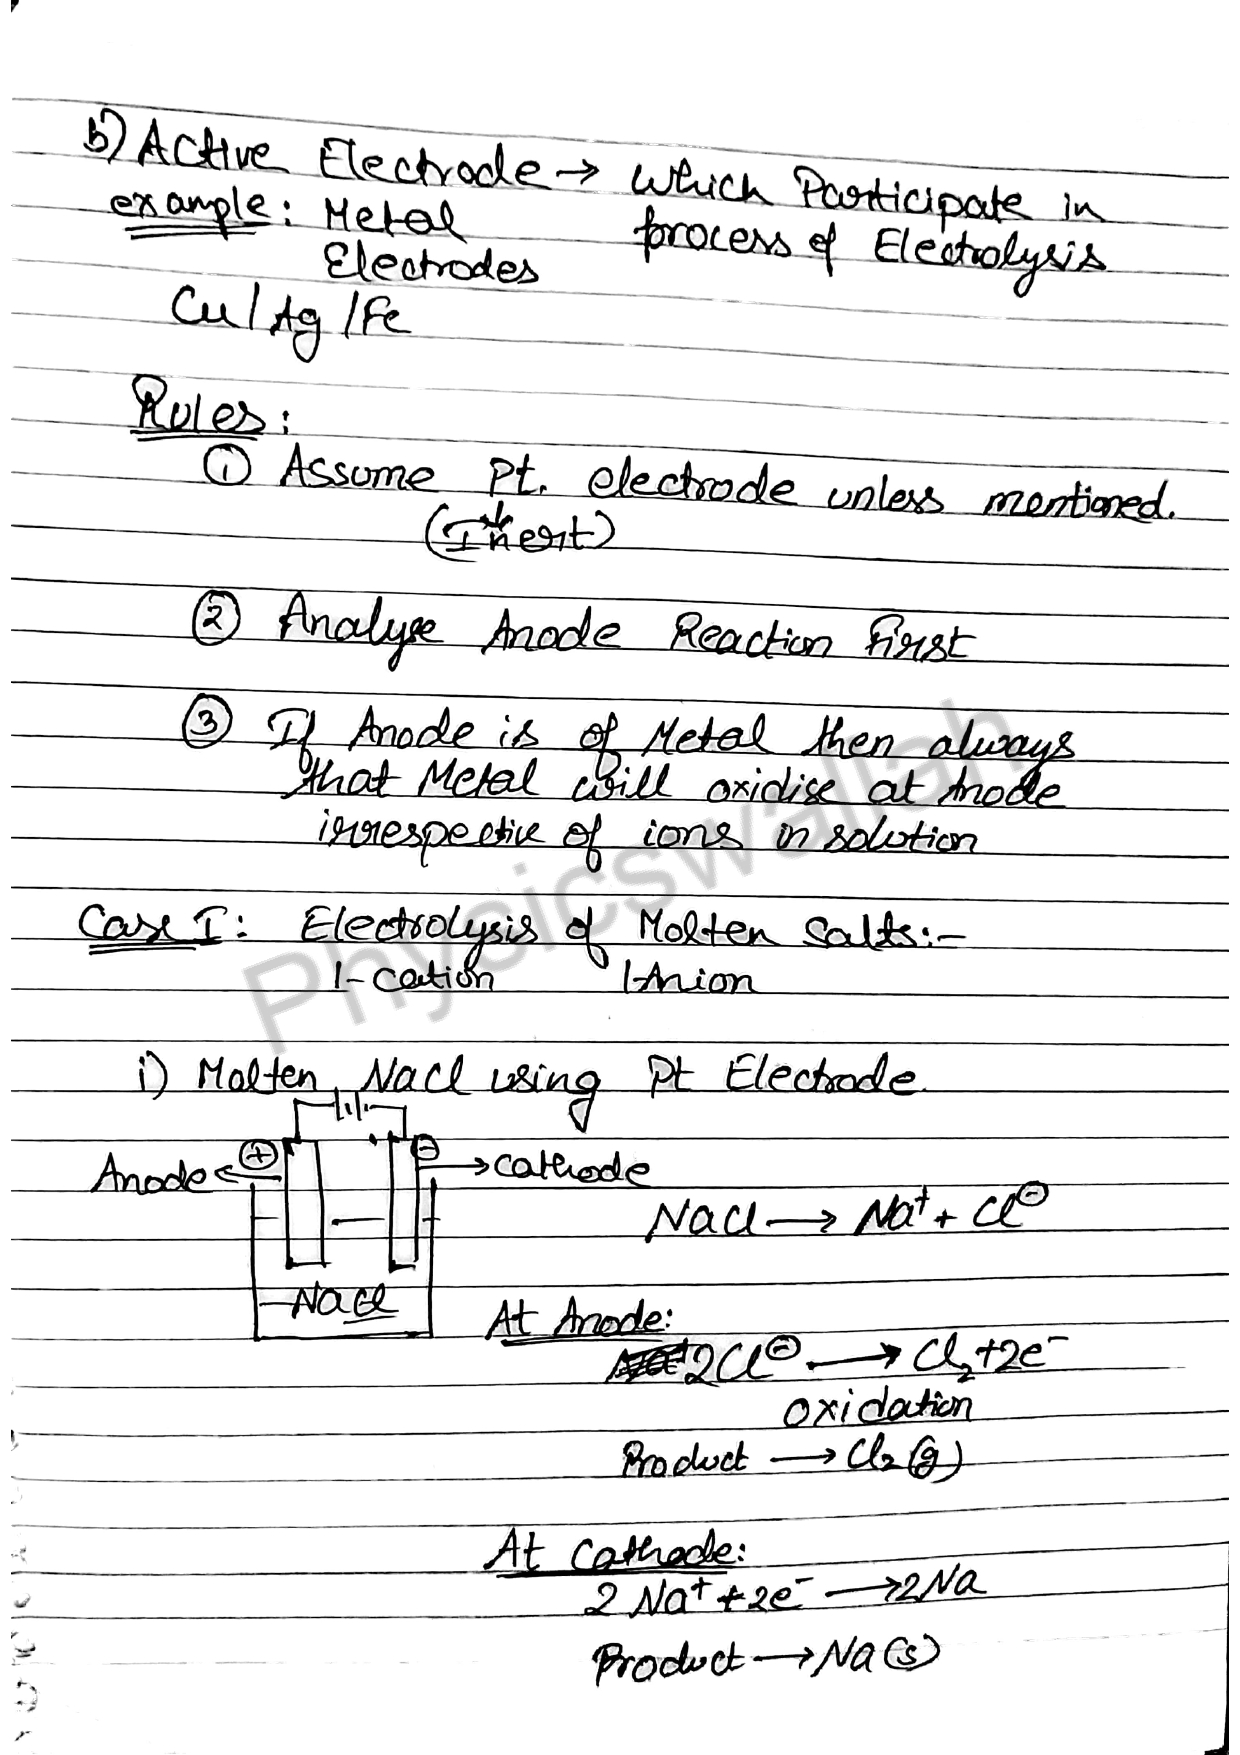 b) Active Electrode → which Participate in
example: Metal process of Electrolysis
Electrodes
Cu/Ag/Fe
Rules:
① Assume Pt. electrode unless mentioned.
(Inert)
② Analyse Anode Reaction First
③ If Anode is of Metal then always
that Metal will oxidise at Anode
irrespective of ions in solution
Case I: Electrolysis of Molten Salts:-
1-cation 1-Anion
i) Molten NaCl using Pt Electrode.
+ −
Anode ← → cathode
NaCl → Na⁺ + Cl⊖
NaCl
At Anode:
2Cl⊖ → Cl₂+2e⁻
oxidation
Product → Cl₂(g)
At Cathode:
2Na⁺+2e⁻ → 2Na
Product → Na(s)
Physicswallah